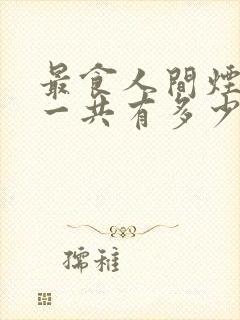 最食人間煙
一共有多少
孺稚